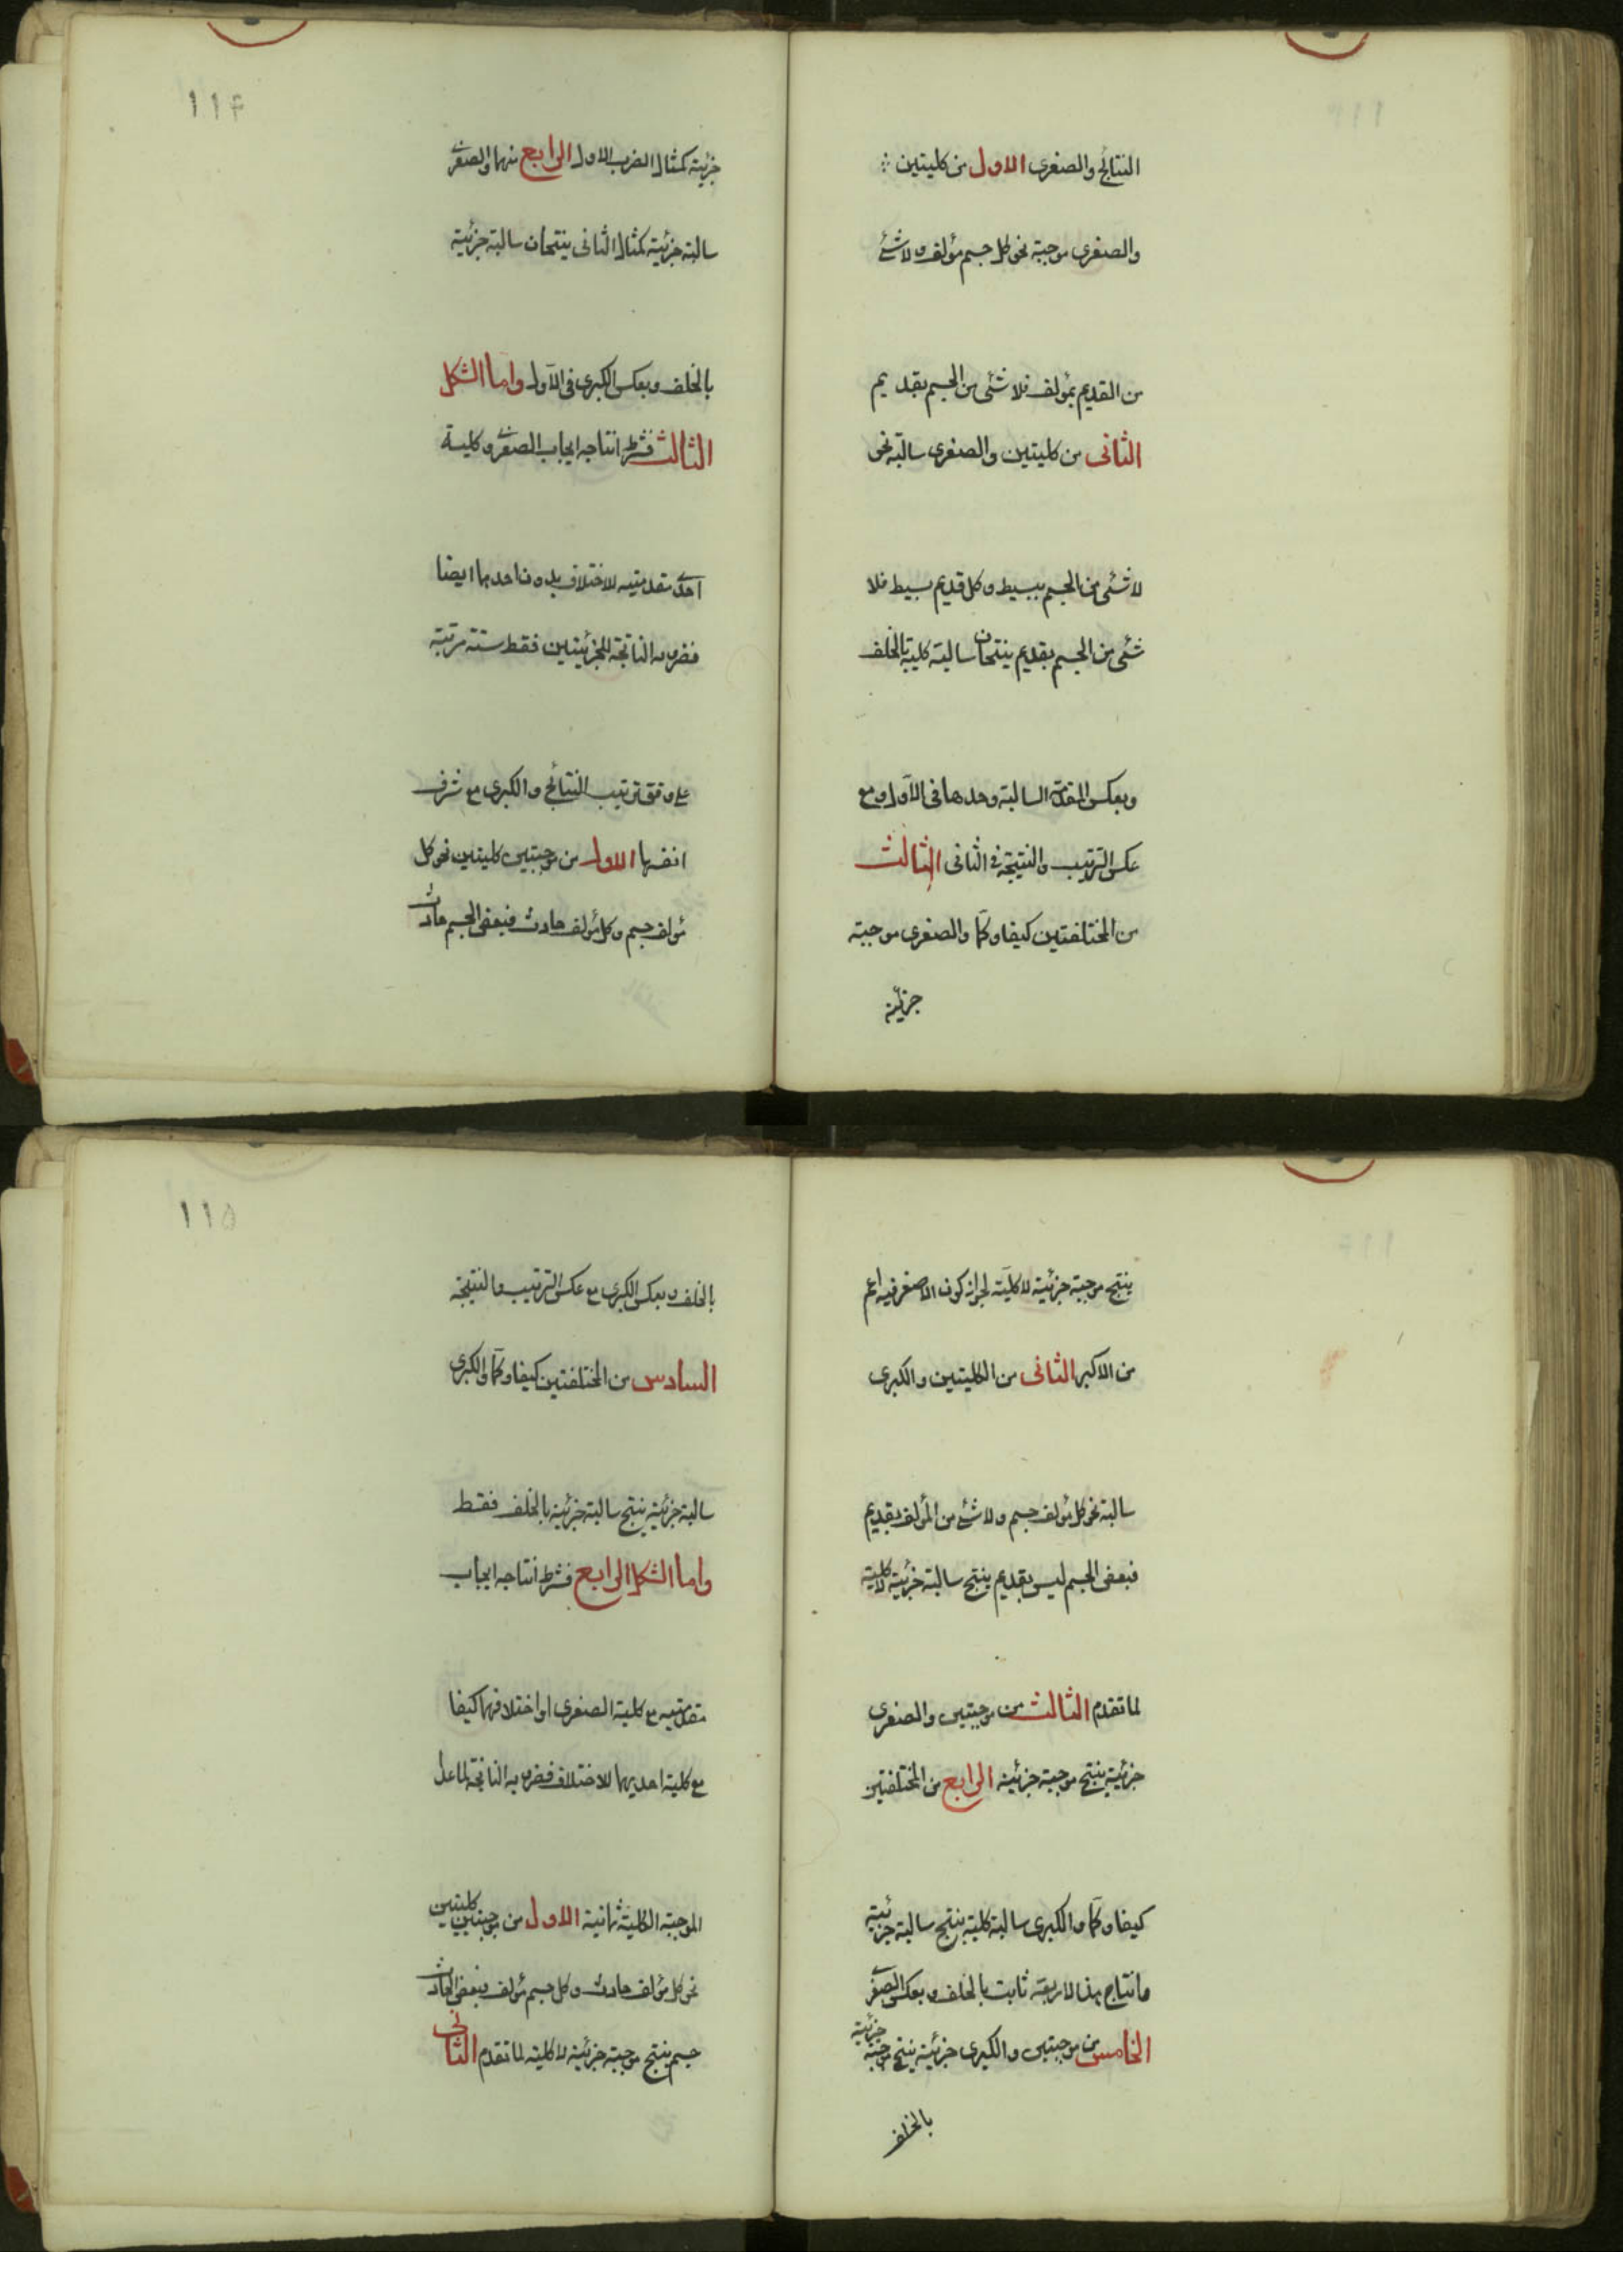 النتائج والصغرى الاول من كليتين
والصغرى موجبة نحو كل جسم مؤلف ولا شئ
من القديم بمؤلف فلا شئ من الجسم بقديم
الثانى من كليتين والصغرى سالبة نحو
لا شئ من الجسم ببسيط وكل قديم بسيط فلا
شئ من الجسم بقديم ينتجان سالبة كلية بالخلف
وبعكس المقدمة السالبة وحدها فى الاول ومع
عكس الترتيب والنتيجة فى الثانى الثالث
من المختلفتين كيفا وكما والصغرى موجبة
جزئية
١١۴
جزئية كمثال الضرب الاول الرابع منهما والصغرى
سالبة جزئية كمثال الثانى ينتجان سالبة جزئية
بالخلف وبعكس الكبرى فى الاول واما الشكل
الثالث فشرط انتاجه ايجاب الصغرى وكلية
احدى مقدمتيه للاختلاف بدون احدهما ايضا
فضروبه الناتجة للجزئيتين فقط ستة مرتبة
على وفق ترتيب النتائج والكبرى مع شرف
انفسها الاول من موجبتين كليتين نحو كل
مؤلف جسم وكل مؤلف حادث فبعض الجسم حادث
ينتج موجبة جزئية لا كلية لجواز كون الاصغر فيه اعم
من الاكبر الثانى من الكليتين والكبرى
سالبة نحو كل مؤلف جسم ولا شئ من المؤلف بقديم
فبعض الجسم ليس بقديم ينتج سالبة جزئية لا كلية
لما تقدم الثالث من موجبتين والصغرى
جزئية ينتج موجبة جزئية الرابع من المختلفتين
كيفا وكما والكبرى سالبة كلية ينتج سالبة جزئية
وانتاج هذه الاربعة ثابت بالخلف وبعكس الصغرى
الخامس من موجبتين والكبرى جزئية ينتج موجبة جزئية
بالخلف
١١۵
بالخلف وبعكس الكبرى مع عكس الترتيب والنتيجة
السادس من المختلفتين كيفا وكما والكبرى
سالبة جزئية ينتج سالبة جزئية بالخلف فقط
واما الشكل الرابع فشرط انتاجه ايجاب
مقدمتيه مع كلية الصغرى او اختلافهما كيفا
مع كلية احديهما للاختلاف فضروبه الناتجة لما عدا
الموجبة الكلية ثمانية الاول من موجبتين كليتين
نحو كل مؤلف حادث وكل جسم مؤلف فبعض الحادث
جسم ينتج موجبة جزئية لا كلية لما تقدم الثانى